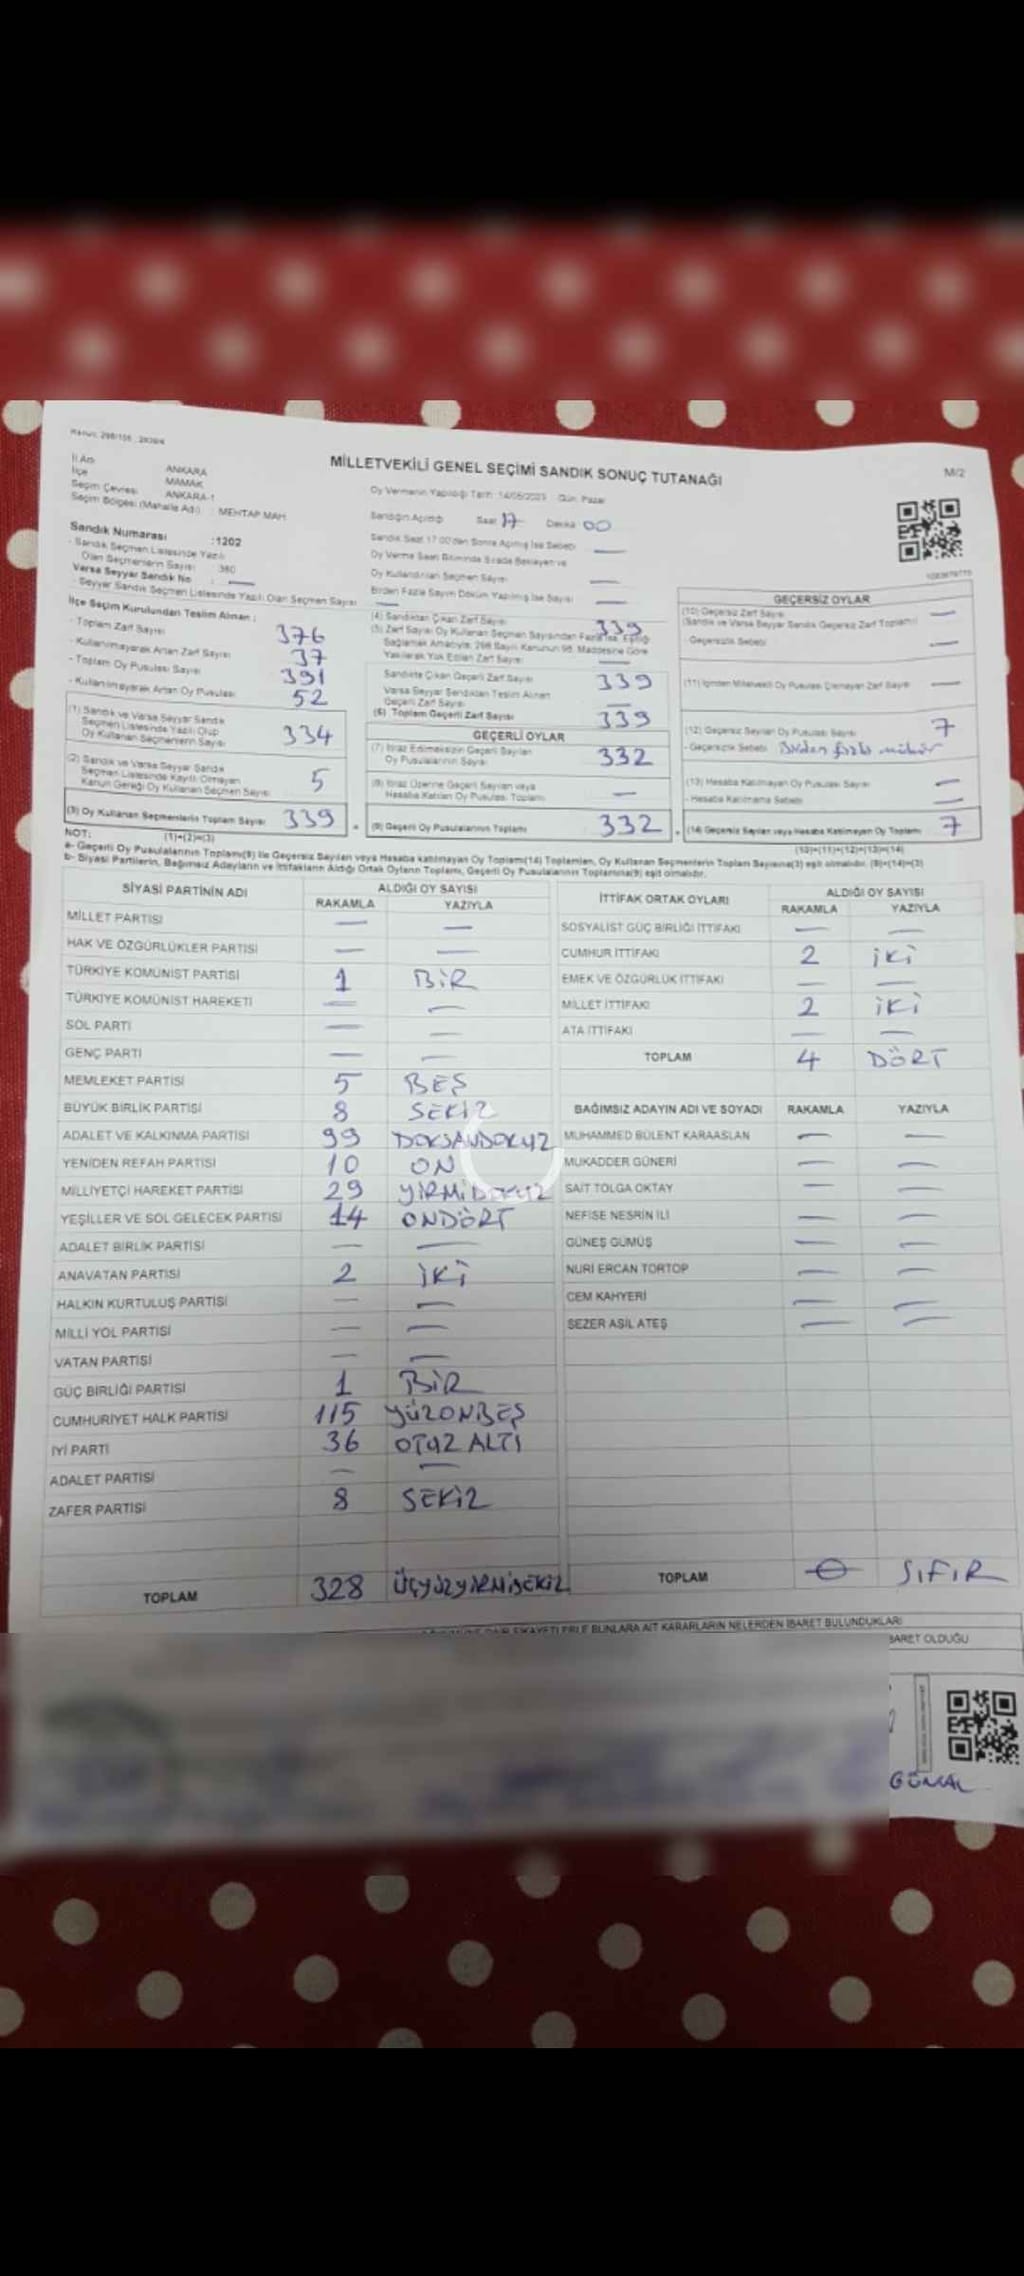 MİLLETVEKİLİ GENEL SEÇİMİ SANDIK SONUÇ TUTANAĞI
M/2
İl Adı ANKARA
İlçe MAMAK
Seçim Çevresi ANKARA-1
Seçim Bölgesi (Mahalle Adı) : MEHTAP MAH
Oy Vermenin Yapıldığı Tarih: 14/05/2023 Gün: Pazar
Sandığın Açıldığı Saat 17 Dakika 00
Sandık Saat 17.00'den Sonra Açılmış İse Sebebi —
Oy Verme Saati Bitiminde Sırada Bekleyen ve
Oy Kullandırılan Seçmen Sayısı —
Birden Fazla Sayım Döküm Yapılmış İse Sayısı —
Sandık Numarası :1202
- Sandık Seçmen Listesinde Yazılı
Olan Seçmenlerin Sayısı 380
Varsa Seyyar Sandık No : —
- Seyyar Sandık Seçmen Listesinde Yazılı Olan Seçmen Sayısı —
İlçe Seçim Kurulundan Teslim Alınan :
- Toplam Zarf Sayısı 376
- Kullanılmayarak Artan Zarf Sayısı 37
- Toplam Oy Pusulası Sayısı 391
- Kullanılmayarak Artan Oy Pusulası 52
(1) Sandık ve Varsa Seyyar Sandık
Seçmen Listesinde Yazılı Olup
Oy Kullanan Seçmenlerin Sayısı 334
(2) Sandık ve Varsa Seyyar Sandık
Seçmen Listesinde Kayıtlı Olmayan
Kanun Gereği Oy Kullanan Seçmen Sayısı 5
(3) Oy Kullanan Seçmenlerin Toplam Sayısı 339
(1)+(2)=(3)
(4) Sandıktan Çıkan Zarf Sayısı 339
(5) Zarf Sayısı Oy Kullanan Seçmen Sayısından Fazla İse, Eşitliği
Sağlamak Amacıyla; 298 Sayılı Kanunun 98. Maddesine Göre
Yakılarak Yok Edilen Zarf Sayısı —
Sandıkta Çıkan Geçerli Zarf Sayısı 339
Varsa Seyyar Sandıktan Teslim Alınan
Geçerli Zarf Sayısı —
(6) Toplam Geçerli Zarf Sayısı 339
GEÇERLİ OYLAR
(7) İtiraz Edilmeksizin Geçerli Sayılan
Oy Pusulalarının Sayısı 332
(8) İtiraz Üzerine Geçerli Sayılan veya
Hesaba Katılan Oy Pusulası Toplamı —
(9) Geçerli Oy Pusulalarının Toplamı 332
GEÇERSİZ OYLAR
(10) Geçersiz Zarf Sayısı —
(Sandık ve Varsa Seyyar Sandık Geçersiz Zarf Toplamı)
- Geçersizlik Sebebi —
(11) İçinden Milletvekili Oy Pusulası Çıkmayan Zarf Sayısı —
(12) Geçersiz Sayılan Oy Pusulası Sayısı 7
- Geçersizlik Sebebi Birden fazla mühür
(13) Hesaba Katılmayan Oy Pusulası Sayısı —
- Hesaba Katılmama Sebebi —
(14) Geçersiz Sayılan veya Hesaba Katılmayan Oy Toplamı 7
(10)+(11)+(12)+(13)=(14)
NOT:
a- Geçerli Oy Pusulalarının Toplamı(9) ile Geçersiz Sayılan veya Hesaba katılmayan Oy Toplamı(14) Toplamları, Oy Kullanan Seçmenlerin Toplam Sayısına(3) eşit olmalıdır. (9)+(14)=(3)
b- Siyasi Partilerin, Bağımsız Adayların ve İttifakların Aldığı Ortak Oyların Toplamı, Geçerli Oy Pusulalarının Toplamına(9) eşit olmalıdır.
SİYASİ PARTİNİN ADI ALDIĞI OY SAYISI
RAKAMLA YAZIYLA
MİLLET PARTİSİ — —
HAK VE ÖZGÜRLÜKLER PARTİSİ — —
TÜRKİYE KOMÜNİST PARTİSİ 1 BİR
TÜRKİYE KOMÜNİST HAREKETİ — —
SOL PARTİ — —
GENÇ PARTİ — —
MEMLEKET PARTİSİ 5 BEŞ
BÜYÜK BİRLİK PARTİSİ 8 SEKİZ
ADALET VE KALKINMA PARTİSİ 99 DOKSANDOKUZ
YENİDEN REFAH PARTİSİ 10 ON
MİLLİYETÇİ HAREKET PARTİSİ 29 YİRMİDOKUZ
YEŞİLLER VE SOL GELECEK PARTİSİ 14 ONDÖRT
ADALET BİRLİK PARTİSİ — —
ANAVATAN PARTİSİ 2 İKİ
HALKIN KURTULUŞ PARTİSİ — —
MİLLİ YOL PARTİSİ — —
VATAN PARTİSİ — —
GÜÇ BİRLİĞİ PARTİSİ 1 BİR
CUMHURİYET HALK PARTİSİ 115 YÜZONBEŞ
İYİ PARTİ 36 OTUZ ALTI
ADALET PARTİSİ — —
ZAFER PARTİSİ 8 SEKİZ
TOPLAM 328 ÜÇYÜZYİRMİSEKİZ
İTTİFAK ORTAK OYLARI ALDIĞI OY SAYISI
RAKAMLA YAZIYLA
SOSYALİST GÜÇ BİRLİĞİ İTTİFAKI — —
CUMHUR İTTİFAKI 2 İKİ
EMEK VE ÖZGÜRLÜK İTTİFAKI — —
MİLLET İTTİFAKI 2 İKİ
ATA İTTİFAKI — —
TOPLAM 4 DÖRT
BAĞIMSIZ ADAYIN ADI VE SOYADI RAKAMLA YAZIYLA
MUHAMMED BÜLENT KARAASLAN — —
MUKADDER GÜNERİ — —
SAİT TOLGA OKTAY — —
NEFİSE NESRİN İLİ — —
GÜNEŞ GÜMÜŞ — —
NURİ ERCAN TORTOP — —
CEM KAHYERİ — —
SEZER ASİL ATEŞ — —
TOPLAM 0 SIFIR
BUNLARA AİT KARARLARIN NELERDEN İBARET BULUNDUKLARI
BARET OLDUĞU